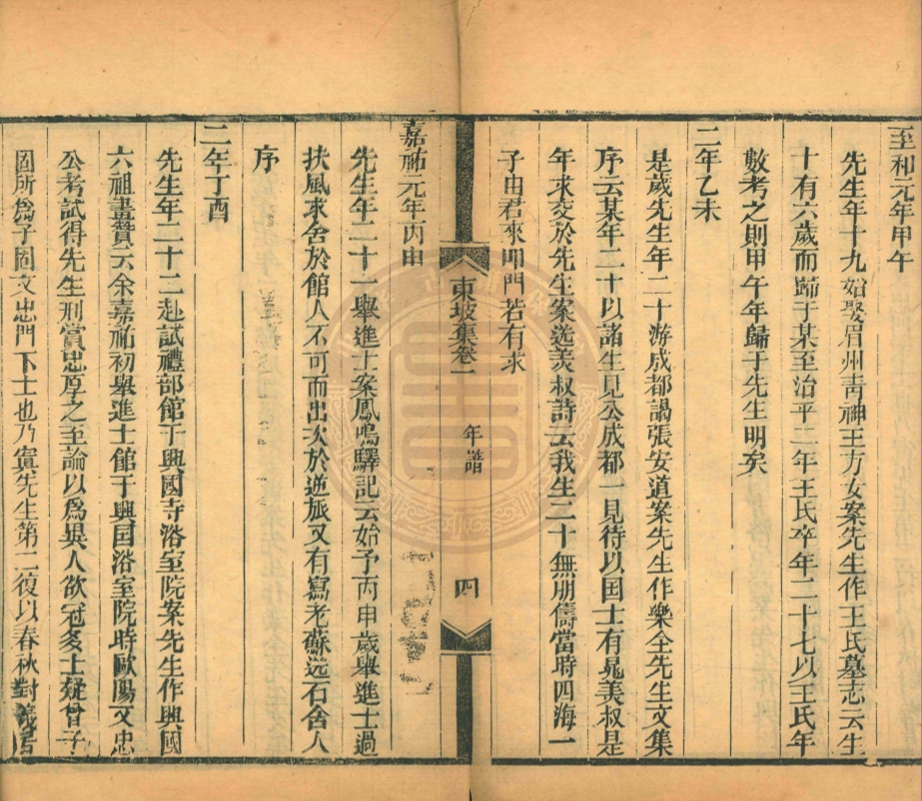 至和元年甲午
先生年十九始娶眉州青神王方女案先生作王氏墓志云生
十有六歲而歸于某至治平二年王氏卒年二十七以王氏年
數考之則甲午年歸于先生明矣
二年乙未
是歲先生年二十游成都謁張安道案先生作樂全先生文集
序云某年二十以諸生見公成都一見待以国士有晁美叔是
年求交於先生案送美叔詩云我生二十無朋儔當時四海一
子由君來叩門若有求
東坡集卷一
年譜
四
嘉祐元年丙申
先生年二十一舉進士案鳳鳴驛記云始予丙申歲舉進士過
扶風求舍於館人不可而出次於逆旅又有寫老蘇送石舍人
序
二年丁酉
先生年二十二赴試禮部館于興國寺浴室院案先生作興國
六祖畫贊云余嘉祐初舉進士館于興国浴室院時歐陽文忠
公考試得先生刑賞忠厚之至論以為異人欲冠多士疑曾子
固所為子固文忠門下士也乃寘先生第二復以春秋對義居